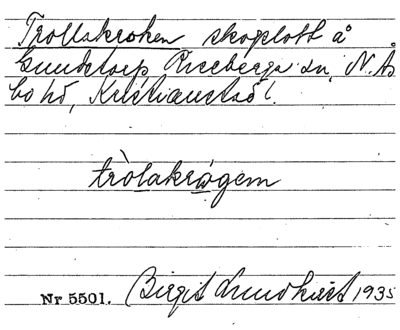 Trollakroken skoglott å
Gundstorp Riseberga sn, N. Ås
bo hd, Kristianstad l.
tròlakrǫgem
Nr 5501. Birgit Lundkvist 1935